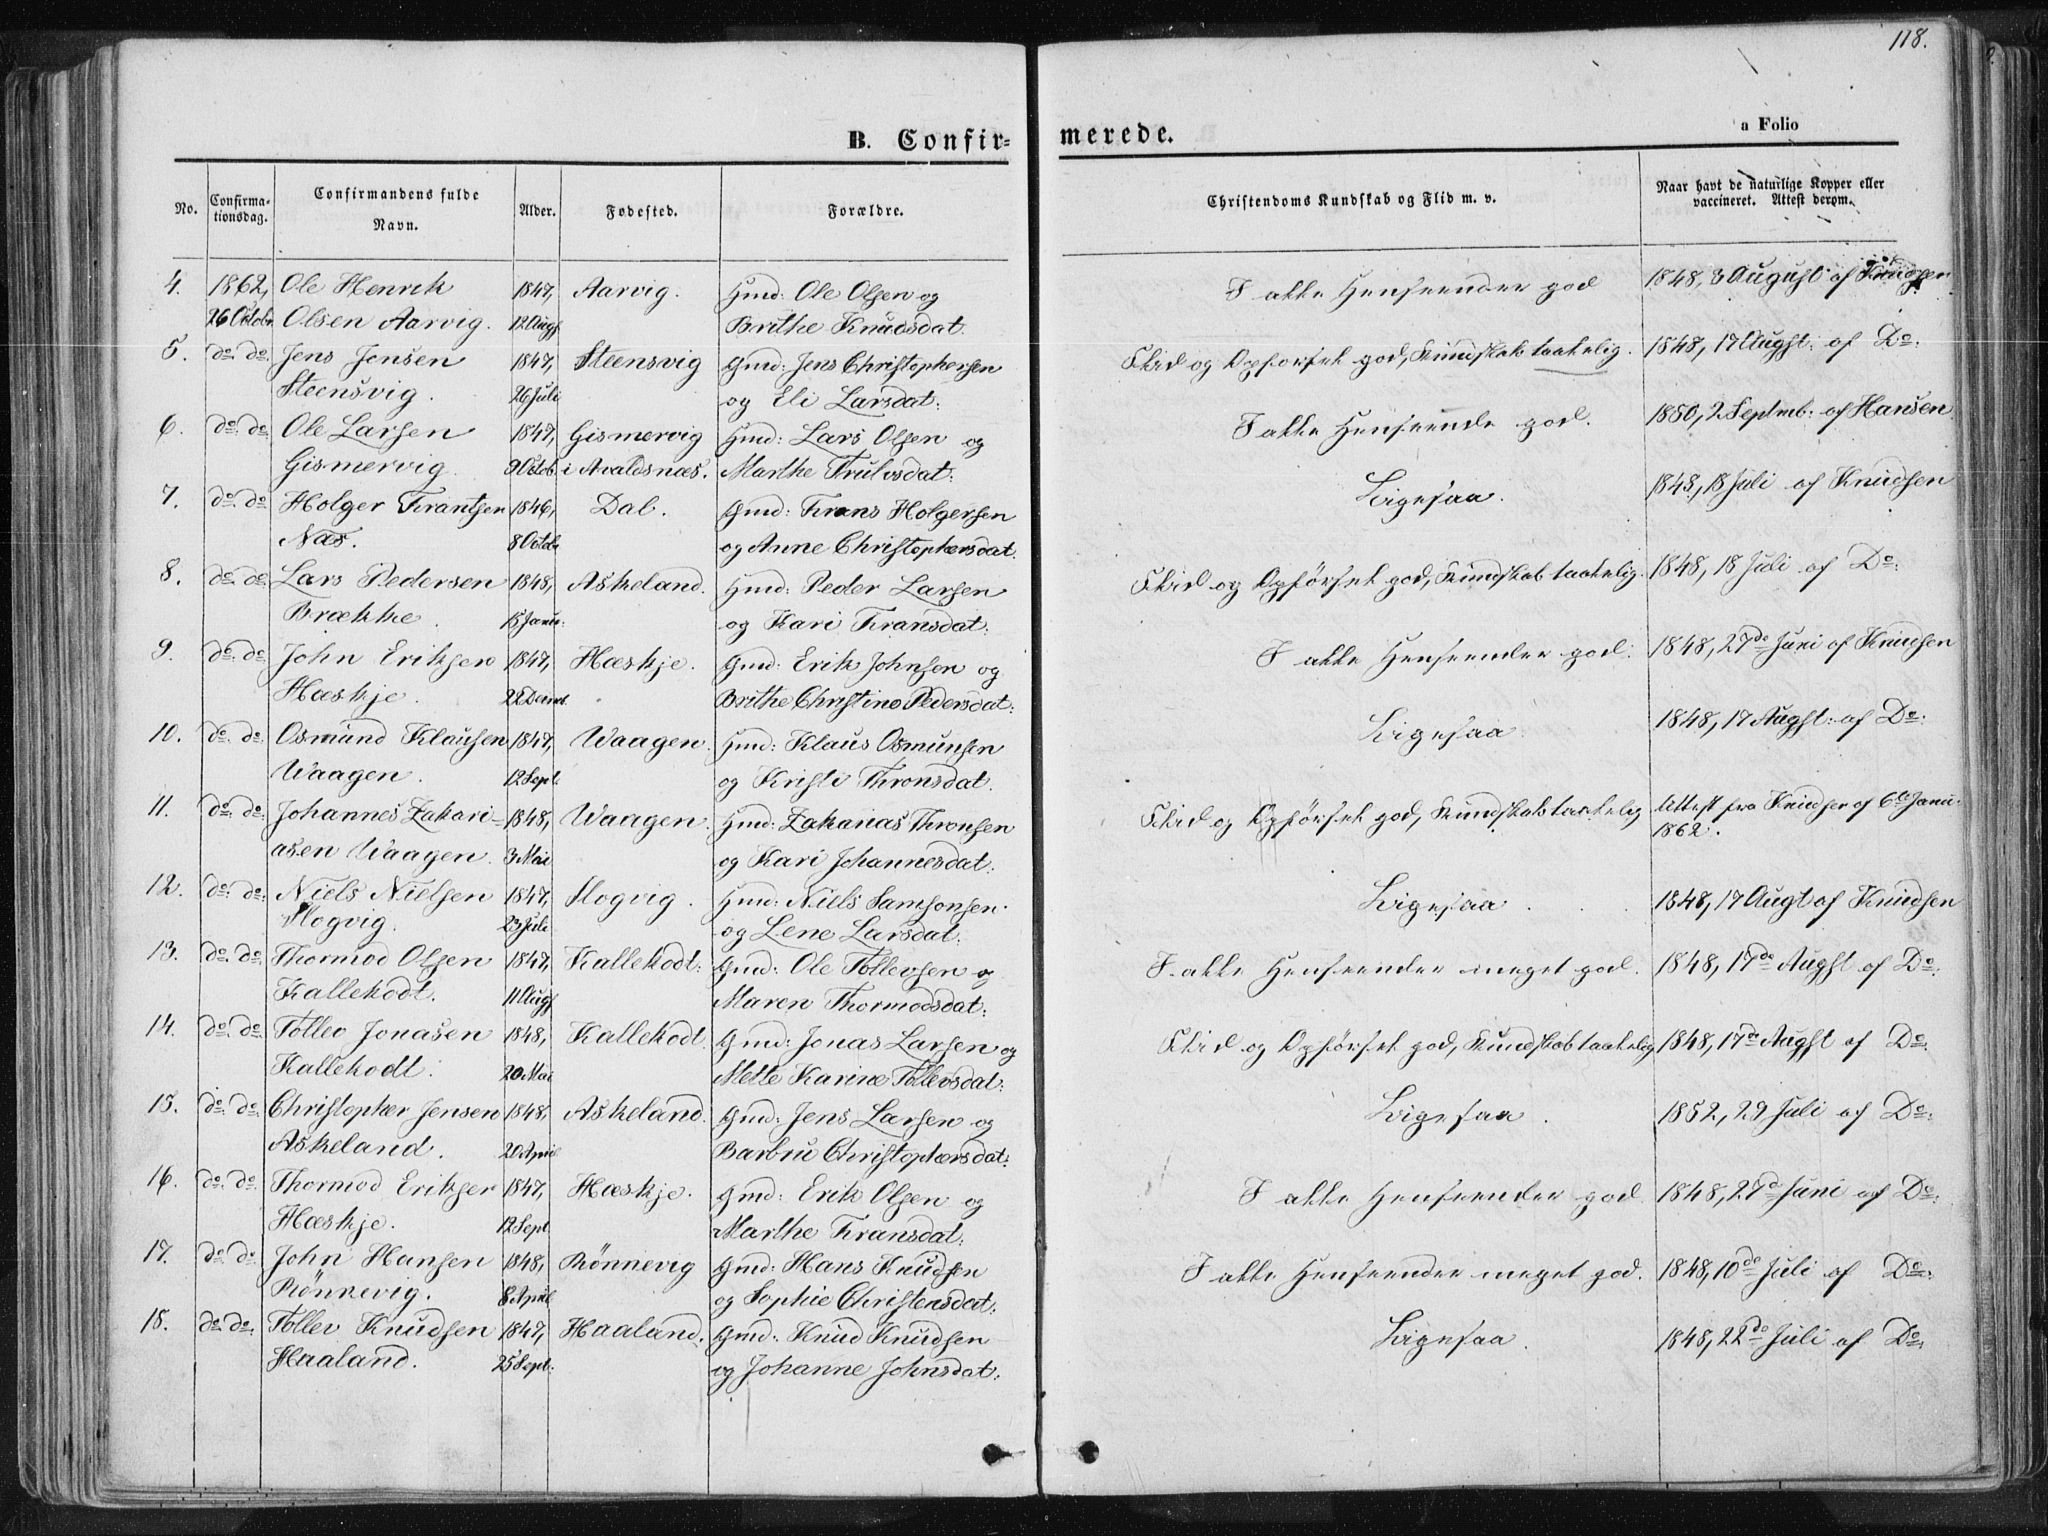 118.
B. Confir- merede.
a Folio
No. Confirma- tionsdag. Confirmandens fulde Navn. Alder. Fødested. Forældre. Christendoms Kundskab og Flid m. v. Naar havt de naturlige Kopper eller vaccineret. Attest derom.
4. 1862, Ole Henrik 1847, Aarvig. Gmd: Ole Olsen og I alle Henseender god 1848, 3 August af Knudsen
26 Octobr. Olsen Aarvig. 12 Augs Brithe Knudsdat.
5. do. do. Jens Jensen 1847, Steensvig Gmd: Jens Christophersen Flid og Opførsel god, Kundskab taalelig. 1848, 17 Augst: af Do:
Steensvig. 26 Juli og Eli Larsdat:
6. do. do. Ole Larsen 1847, Gismervig Gmd: Lars Olsen og I alle Henseende god. 1850, 2 Septmb: af Hansen
Gismervig 9 Octob. i Avaldsnæs. Marthe Trulvsdat:
7. do. do Holger Frantsen 1846, Dal. Gmd: Frans Holgersen Ligesaa. 1848, 18 Juli af Knudsen
Næs. 8 Octobr og Anne Christophersdat.
8. do. do. Lars Pedersen 1848, Askeland. Gmd: Peder Larsen Flid og Opførsel god, Kundskab taalelig. 1848, 18 Juli af Do:
Brække. 15 Janu: og Kari Fransdat:
9. do. do. John Eriksen 1847, Hæskje. Gmd: Erik Johnsen og I alle Henseender god. 1848, 27de Juni af Knudsen
Hæskje. 22 Decmb. Brithe Christine Pedersdat:
10. do. do. Osmund Klausen 1847, Waagen. Gmd: Klaus Osmunsen Ligesaa. 1848, 17 Augst: af Do:
Waagen. 12 Sept. og Kristi Thronsdat.
11. do. do. Johannes Zakari- 1848, Waagen. Gmd: Zakarias Thronsen Flid og Opførsel god, Kundskab taalelig Attest fra Knudsen af 6te Janu:
asen Waagen. 3 Mai og Kari Johannesdat: 1862.
12. do. do. Niels Nielsen 1847, Slogvig. Gmd: Niels Samsonsen Ligesaa. 1848, 17 Augt af Knudsen
Slogvig. 23 Juli og Lene Larsdat:
13. do. do. Thormod Olsen 1847, Kallekodt: Gmd: Ole Tollevsen og I alle Henseender meget god. 1848, 17de Augst af Do:
Kallekodt. 11 Augs Maren Thormodsdat:
14. do. do. Tollev Jonasen 1848, Kallekodt. Gmd: Jonas Larsen og Flid og Opførsel god, Kundskab taalelig 1848, 17de Augst af Do:
Kallekodt. 20 Mai Mette Karine Tollevsdat:
15. do. do. Christopher Jensen 1848, Askeland. Gmd: Jens Larsen og Ligesaa. 1852, 29 Juli af Do:
Askeland. 20 April Barbru Christophersdat:
16. do. do. Thormod Eriksen 1847, Hæskje. Gmd: Erik Olsen og I alle Henseender god. 1848, 27de Juni af Do:
Hæskje. 12 Sept Marthe Fransdat:
17. do. do. John Hansen 1848, Rönnevig Gmd: Hans Knudsen I alle Henseender meget god. 1848, 10de Juli af Do:
Rönnevig. 8 April og Sophie Christensdat:
18. do. do. Tollev Knudsen 1847, Haaland. Gmd: Knud Knudsen Ligesaa. 1848, 22de Juli af Do:
Haaland. 25 Sept. og Johanne Johnsdat: